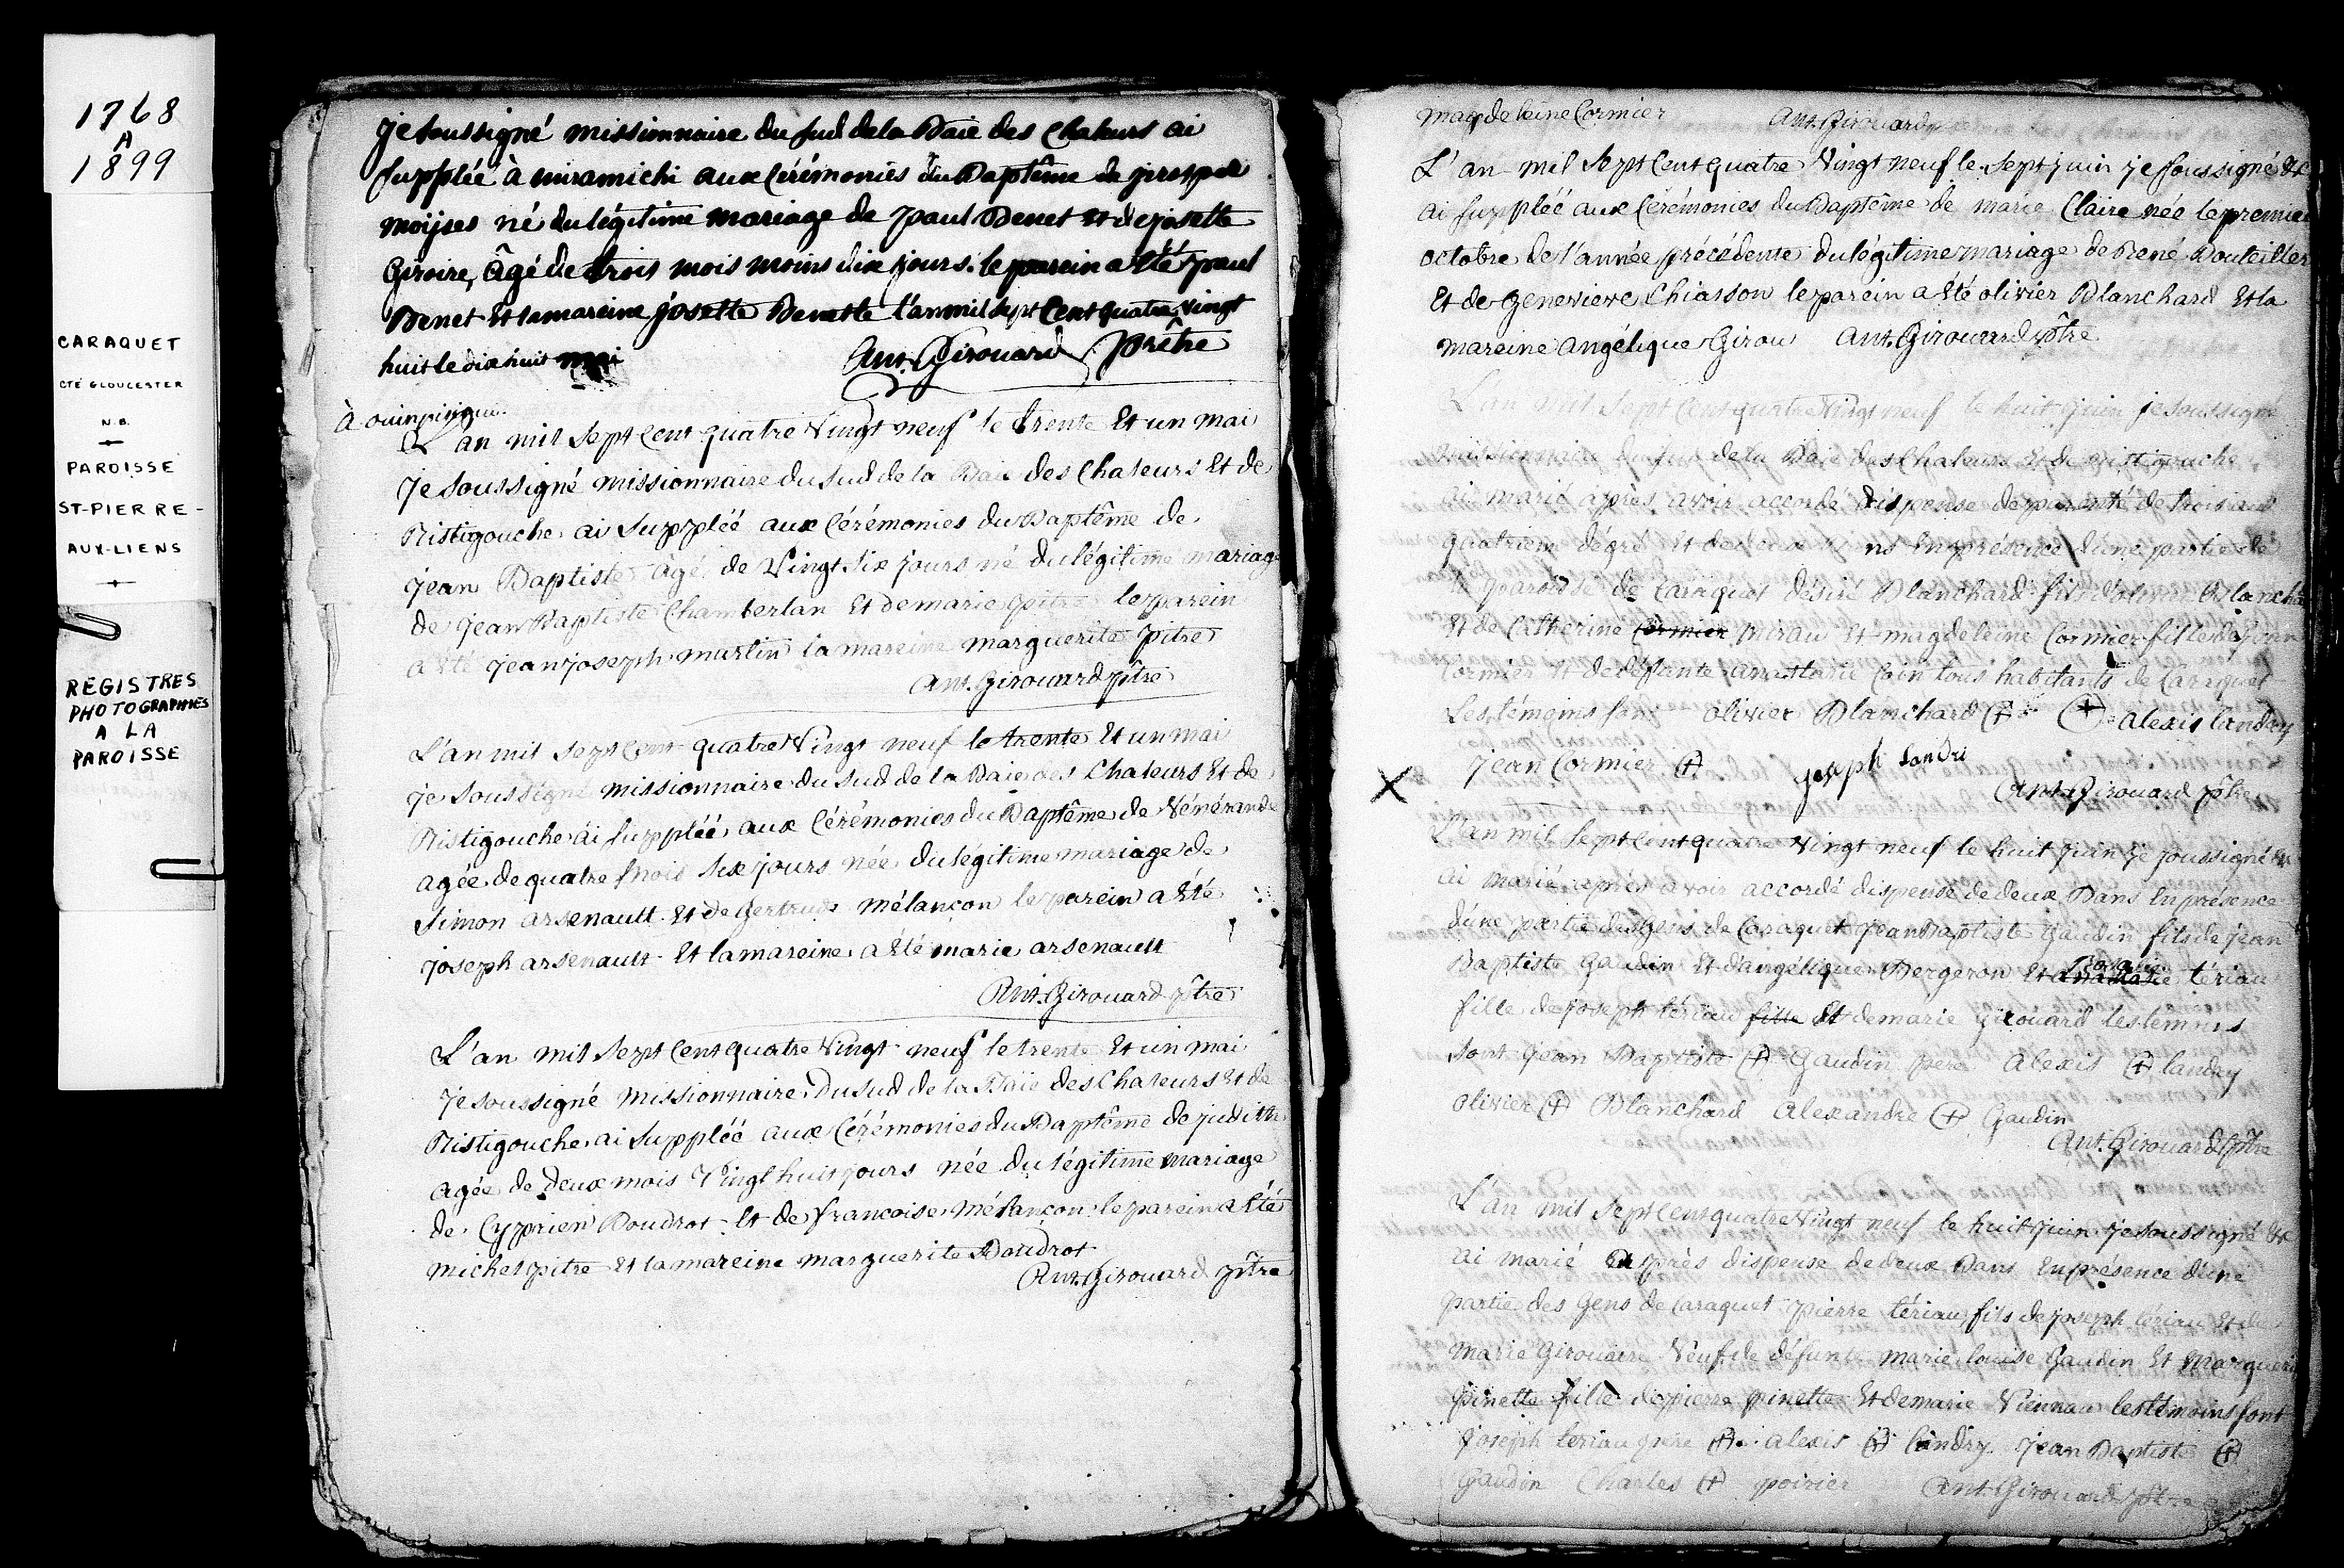 1768
A
1899
CARAQUET
CTÉ GLOUCESTER
N.B.
PAROISSE
ST-PIERRE-
AUX-LIENS
REGISTRES
PHOTOGRAPHIÉS
A LA
PAROISSE
je soussigné missionnaire du Sud de la Baie des Chaleurs ai
suppléé à miramichi aux Cérémonies du Baptême de
moyses né du légitime mariage de paul Benet et de josette
Giroire, âgé de trois mois moins dix jours. le parein a Eté paul
Benet Et la mareine josette Benette l'an mil sept Cent quatre Vingt
huit le dix huit mai Ant. Girouard prêtre
à
L'an mil Sept Cent quatre Vingt neuf le trente Et un mai
je soussigné missionnaire du sud de la Baie des Chaleurs Et de
Ristigouche ai Suppléé aux Cérémonies du Baptême de
jean Baptiste âgé de Vingt Six jours né du légitime mariage
de jean Baptiste Chamberlan Et de marie pitre le parein
a Eté jean joseph martin la mareine marguerite pitre
Ant. Girouard ptre
L'an mil sept Cent quatre Vingt neuf le trente Et un mai
je soussigné missionnaire du Sud de la Baie des Chaleurs Et de
Ristigouche ai suppléé aux Cérémonies du Baptême de Vénérande
agée de quatre mois Six jours née du légitime mariage de
Simon arsenault Et de Gertrude mélancon le parein a Eté
joseph arsenault Et la mareine a Eté marie arsenault
Ant. Girouard ptre
L'an mil Sept Cent quatre Vingt neuf le trente Et un mai
je soussigné missionnaire Du sud de la Baie des Chaleurs Et de
Ristigouche ai Suppléé aux Cérémonies du Baptême de judith
agée de Deux mois Vingt huit jours née du légitime mariage
de Cyprien Boudrot Et de francoise mélancon le parein a Eté
michel pitre Et la mareine marguerite Boudrot
Ant. Girouard ptre
magdeleine Cormier Ant. Girouard
L'an mil Sept Cent quatre Vingt neuf le Sept juin je soussigné &c
ai suppléé aux Cérémonies du Baptême de marie Claire née le premier
octobre de l'année précédente du légitime mariage de René Bouteiller
Et de Genevieve Chiasson le parein a Eté olivier Blanchard Et la
mareine angélique Girou Ant. Girouard ptre
L'an mil Sept Cent quatre Vingt neuf le huit juin je soussigné
missionnaire du Sud de la Baie des Chaleurs Et de Ristigouche
ai marié après avoir accordé dispense de parenté de trois au
quatrieme dégré Et de deux En présence d'une partie de
la paroisse de Caraquet désiré Blanchard fils d'olivier Blanchard
Et de Catherine Cormier Et magdeleine Cormier fille de jean
Cormier Et de défunte anastasie tous habitants de Caraquet
Les témoins sont olivier Blanchard + + alexis landry
jean Cormier + joseph landri
Ant. Girouard ptre
X
L'an mil Sept Cent quatre Vingt neuf le huit juin je soussigné &c
ai marié après avoir accordé dispense de deux Bans En présence
d'une partie des Gens de Caraquet jean Baptiste Gaudin fils de jean
Baptiste Gaudin Et d'angélique Bergeron Et anastasie tériau
fille de joseph tériau fille Et de marie Girouard les temoins
sont jean Baptiste + Gaudin pere Alexis + landry
olivier + Blanchard Alexandre + Gaudin
Ant. Girouard ptre
L'an mil Sept Cent quatre Vingt neuf le huit juin je soussigné &c
ai marié après dispense de deux Bans En présence d'une
partie des Gens de Caraquet pierre tériau fils de joseph tériau Et de
marie Girouaire Veuf de défunte marie louise Gaudin Et marguerite
pinette fille de pierre pinette Et de marie Viennau les témoins sont
joseph tériau pere + alexis + landry jean Baptiste +
Gaudin Charles + poirier Ant. Girouard ptre